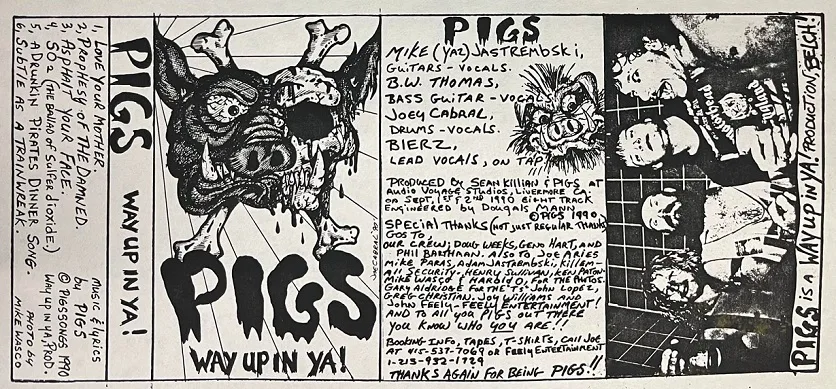 1. LOVE YOUR MOTHER.
2. PROPHESY OF THE DAMNED.
3. ASPHALT YOUR FACE.
4. SO2 (THE BALLAD OF SULFER DIOXIDE.)
5. A DRUNKIN PIRATES DINNER SONG
6. SUBTLE AS A TRAINWREAK.
MUSIC & LYRICS
by PIGS
© PIGSSONGS 1990
WAY UP IN YA, PROD.
PHOTO by
MIKE WASCO
PIGS WAY UP IN YA!
PIGS
WAY UP IN YA!
PIGS
MIKE (YAZ) JASTREMBSKI,
GUITARS - VOCALS.
B.W. THOMAS,
BASS GUITAR - VOCA
JOEY CABRAL,
DRUMS - VOCALS.
BIERZ,
LEAD VOCALS, ON TAP
PRODUCED BY SEAN KILLIAN & PIGS AT
AUDIO VOYAGE STUDIOS, LIVERMORE CA
ON SEPT, 1ST & 2ND 1990 EIGHT TRACK
ENGINEERED by DOUGALS MANN
© PIGS 1990
SPECIAL THANKS (NOT JUST REGULAR THANKS)
GOS TO,
OUR CREW; DOUG WEEKS, GENO HART, AND
PHIL BARTHAAN. ALSO TO JOE ARIES
MIKE PARAS, ADAM JASTREMBSKI, KILLEM-
ALL SECURITY - HENRY SULLIVAN, KEN PATON
MIKE WASCO & HAROLD O, FOR THE PHOTOS.
GARY ALDRIDGE FOR THE "T'S" JOHN LOPEZ,
GREG CHRISTIAN. JOY WILLIAMS AND
JOHN FEELY - FEELY ENTERTAINMENT!
AND TO ALL YOU PIGS OUT THERE
YOU KNOW WHO YOU ARE!!
BOOKING INFO, TAPES, T-SHIRTS, CALL JOE
AT 415-537-7069 OR FEELY ENTERTAINMENT
1-213-932-1729
THANKS AGAIN FOR BEING PIGS!!
Motorhead
PIGS IS A WAY UP IN YA! PRODUCTION, BELCH!